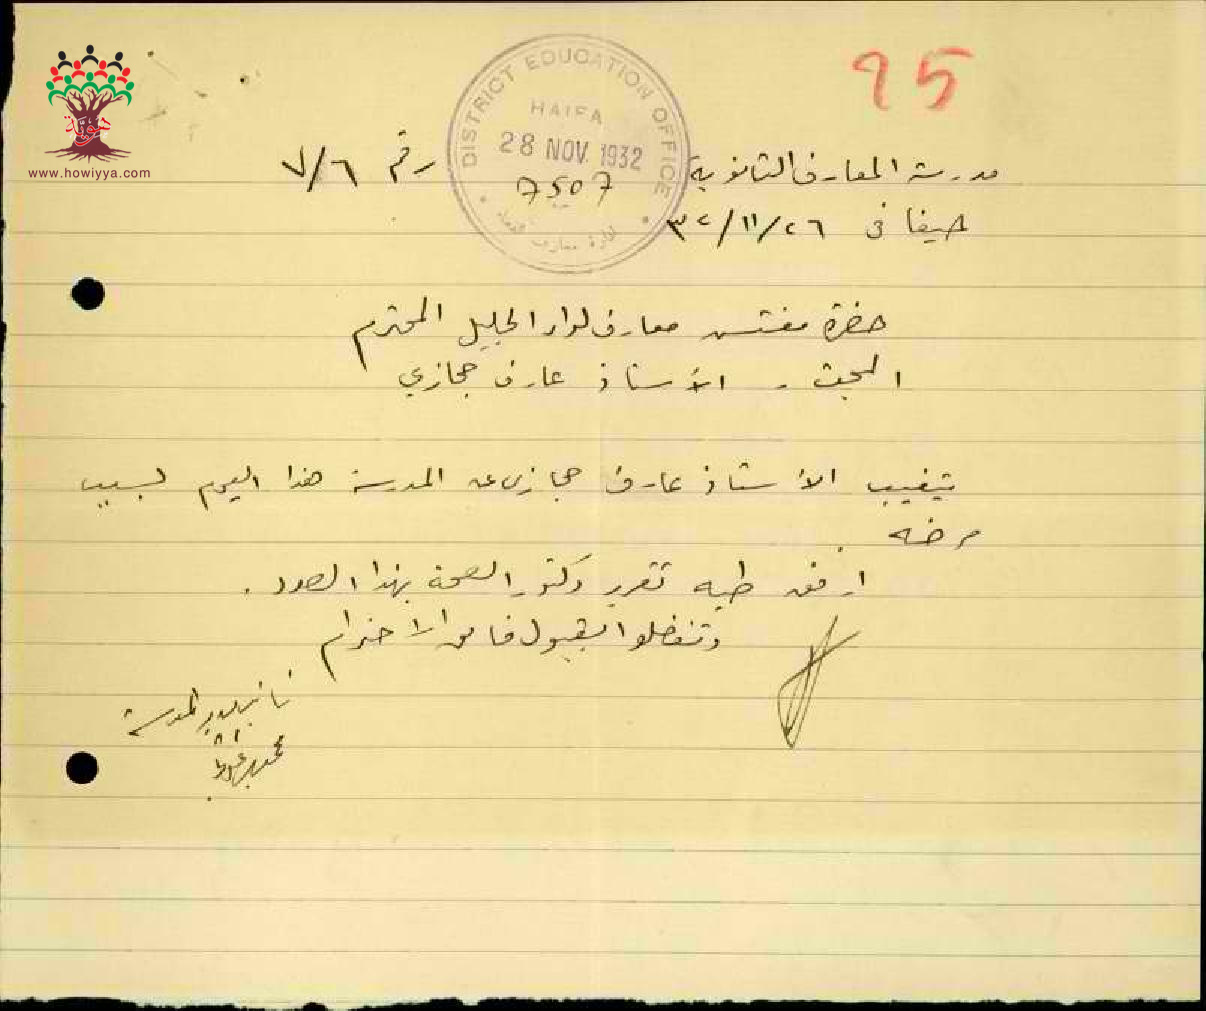 95
هوية
www.howiyya.com
DISTRICT EDUCATION OFFICE
HAIFA
28 NOV. 1932
7507
مدرسة المعارف الثانوية
رقم ٧/٦
حيفا في ٢٦/١١/٣٢
حضرة مفتش معارف لواء الجليل المحترم
البحث - الأستاذ عارف حجازي
يتغيب الأستاذ عارف حجازي عن المدرسة هذا اليوم بسبب
مرضه .
ارفق طيه تقرير دكتور الصحة بهذا الصدد .
وتفضلوا بقبول فائق الاحترام
المدرسة